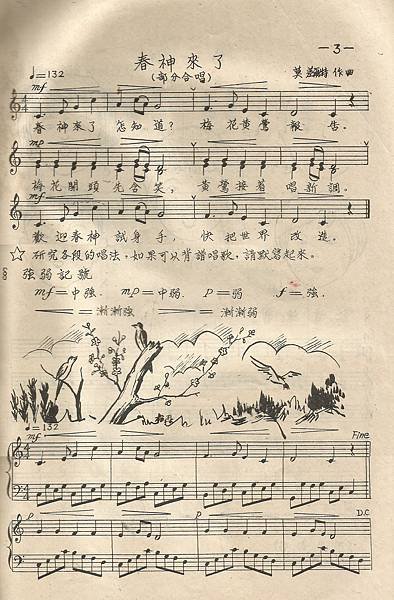 —3—
春神來了
(部分合唱)
♩=132
莫 特 作曲
mf
春神來了 怎知道? 梅花黃鶯 報告.
mp
梅花開頭先含笑, 黃鶯接着 唱新調.
mf
歡迎春神 試身手, 快把世界 改造.
☆ 研究各段的唱法,如果可以背譜唱歌,請默寫起來。
§ 強弱記號
mf=中強. mp=中弱. p=弱 f=強.
=漸漸強 =漸漸弱
♩=132
mf
Fine
p
p
D.C